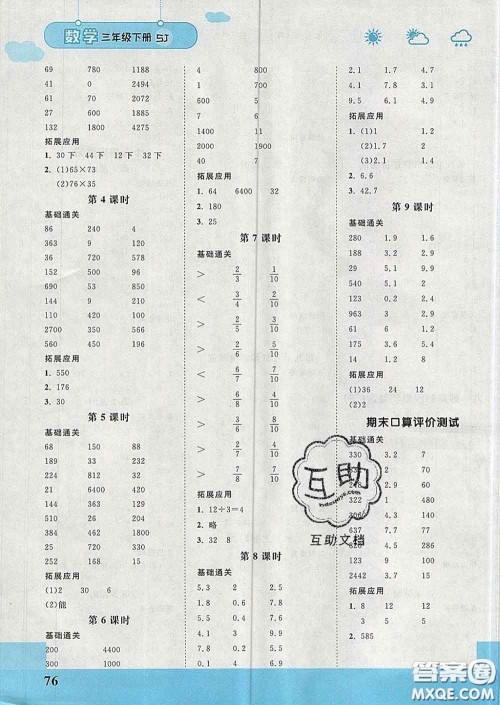 数学 三年级下册 SJ
69 780 1188
41 0 2494
27 600 6885
132 1800 4275
拓展应用
1. 30下 44下 12下 32下
2. (1)65×73
(2)76×35
第4课时
基础通关
86 240 4
236 21 360
152 500 96
690 53 850
94 9 350
110 420 100
2700 350 114
560 450 194
拓展应用
1. 550
2. 176
3. 30
第5课时
基础通关
68 150 88
189 33 232
224 812 32
21 6400 450
144 428 21
224 520 151
320 290 4
拓展应用
1. (1)2 30 6
(2)能
第6课时
基础通关
200 4400
300 1000
4 800
700
6500 5
7
1400 11
2000
40 700
拓展应用
1. 64 6400 32
2. 180
3. 25
第7课时
基础通关
> 2/3 1/10
< 3/4 2/10
> 2/5 3/10
< 6/7 4/10
> 6/8 7/10
< 6/7 8/10
> 7/8 7/10
拓展应用
1. 12÷3=4
2. 略
3. 32 8
第8课时
基础通关
5.3 2 2.5
1.8 0.6 7.8
4.9 1.9 9.2
0.4 3 4.5
2.1 1.3 9.7
4.1 7.8 3.1
9.5 6.1 4.9
拓展应用
1. (1)1 1.2
(2)1.7 2
(3)2.1 1.4
2. 6.6
3. 42.7
第9课时
基础通关
280 1.9 1.6
188 5.2 1.2
29 5.1 9.9
37 2.9 5.4
930 0.2 3
144 9.1 9.9
175 3.6 5.4
14 8.2 1.8
拓展应用
1. (1)36 24 12
(2)2
期末口算评价测试
330 3.2 7
60 0.2
6.5
322 1 1
3060 4.2
637 0.8
2400 0.2
2442 3.7
拓展应用
1. 8 12 12
3 5
2. 585
互助
互助文档
76
答案圈
MXQE.COM